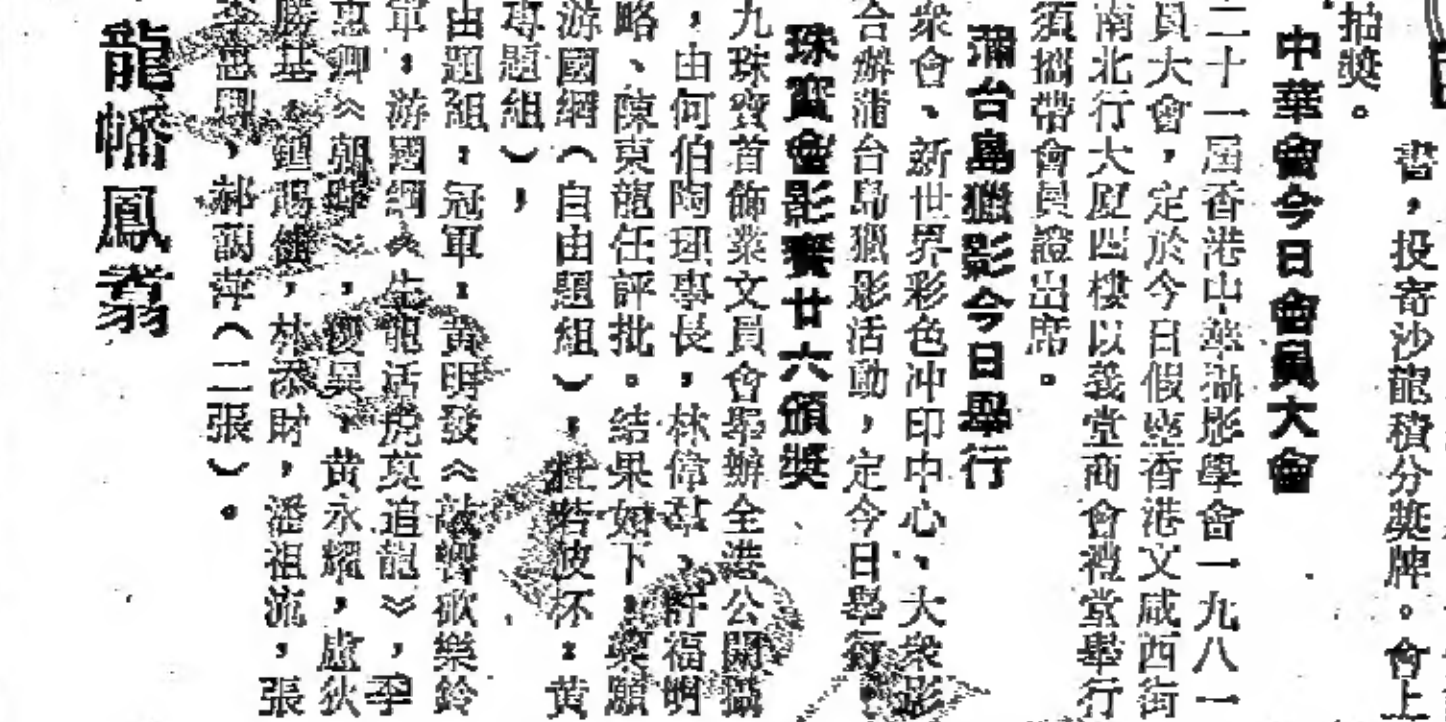 書，投寄沙龍積分奬牌。會上
抽獎。
中華會今日會員大會
二十一屆香港中華攝影學會一九八一
員大會，定於今日假座香港文咸西街
南北行大廈四樓以義堂商會禮堂舉行
須攜帶會員證出席。
蒲台島獵影今日舉行
衆會、新世界彩色冲印中心、大衆影
合辦蒲台島獵影活動，定今日舉行。
珠寶會影賽廿六頒獎
九珠寶首飾業文員會舉辦全港公開攝
，由何伯陶理事長，林偉群、許福明
略、陳東龍任評批。結果如下：榮願
游國綱（自由題組），杜若波杯：黄
專題組），
由題組：冠軍：黄明發《鼓響砍樂鈴
軍：游國綱《生龍活虎莫追龍》，李
惠卿《朝 》，優異：黄永耀，盧狄
勝基、鍾賜 ，林添財，潘祖流，張
惠 、郝藹萍（二張）。
龍幡鳳翥